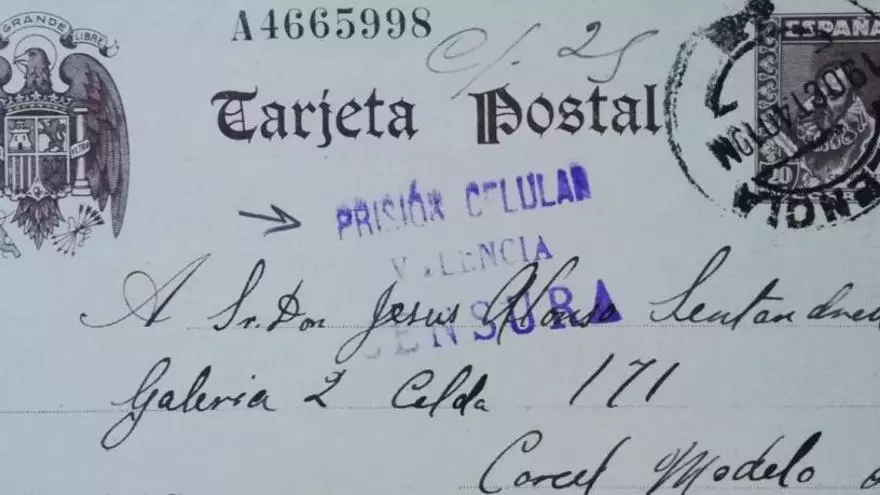 GRANDE LIBRE
A4665998
C/. 25
ESPAÑA
Tarjeta Postal
19 OCT 40
VALENCIA
PRISIÓN CELULAR
VALENCIA
CENSURA
A Sr. Don Jesus Alfonso
Galeria 2 Celda 171
Carcel Modelo